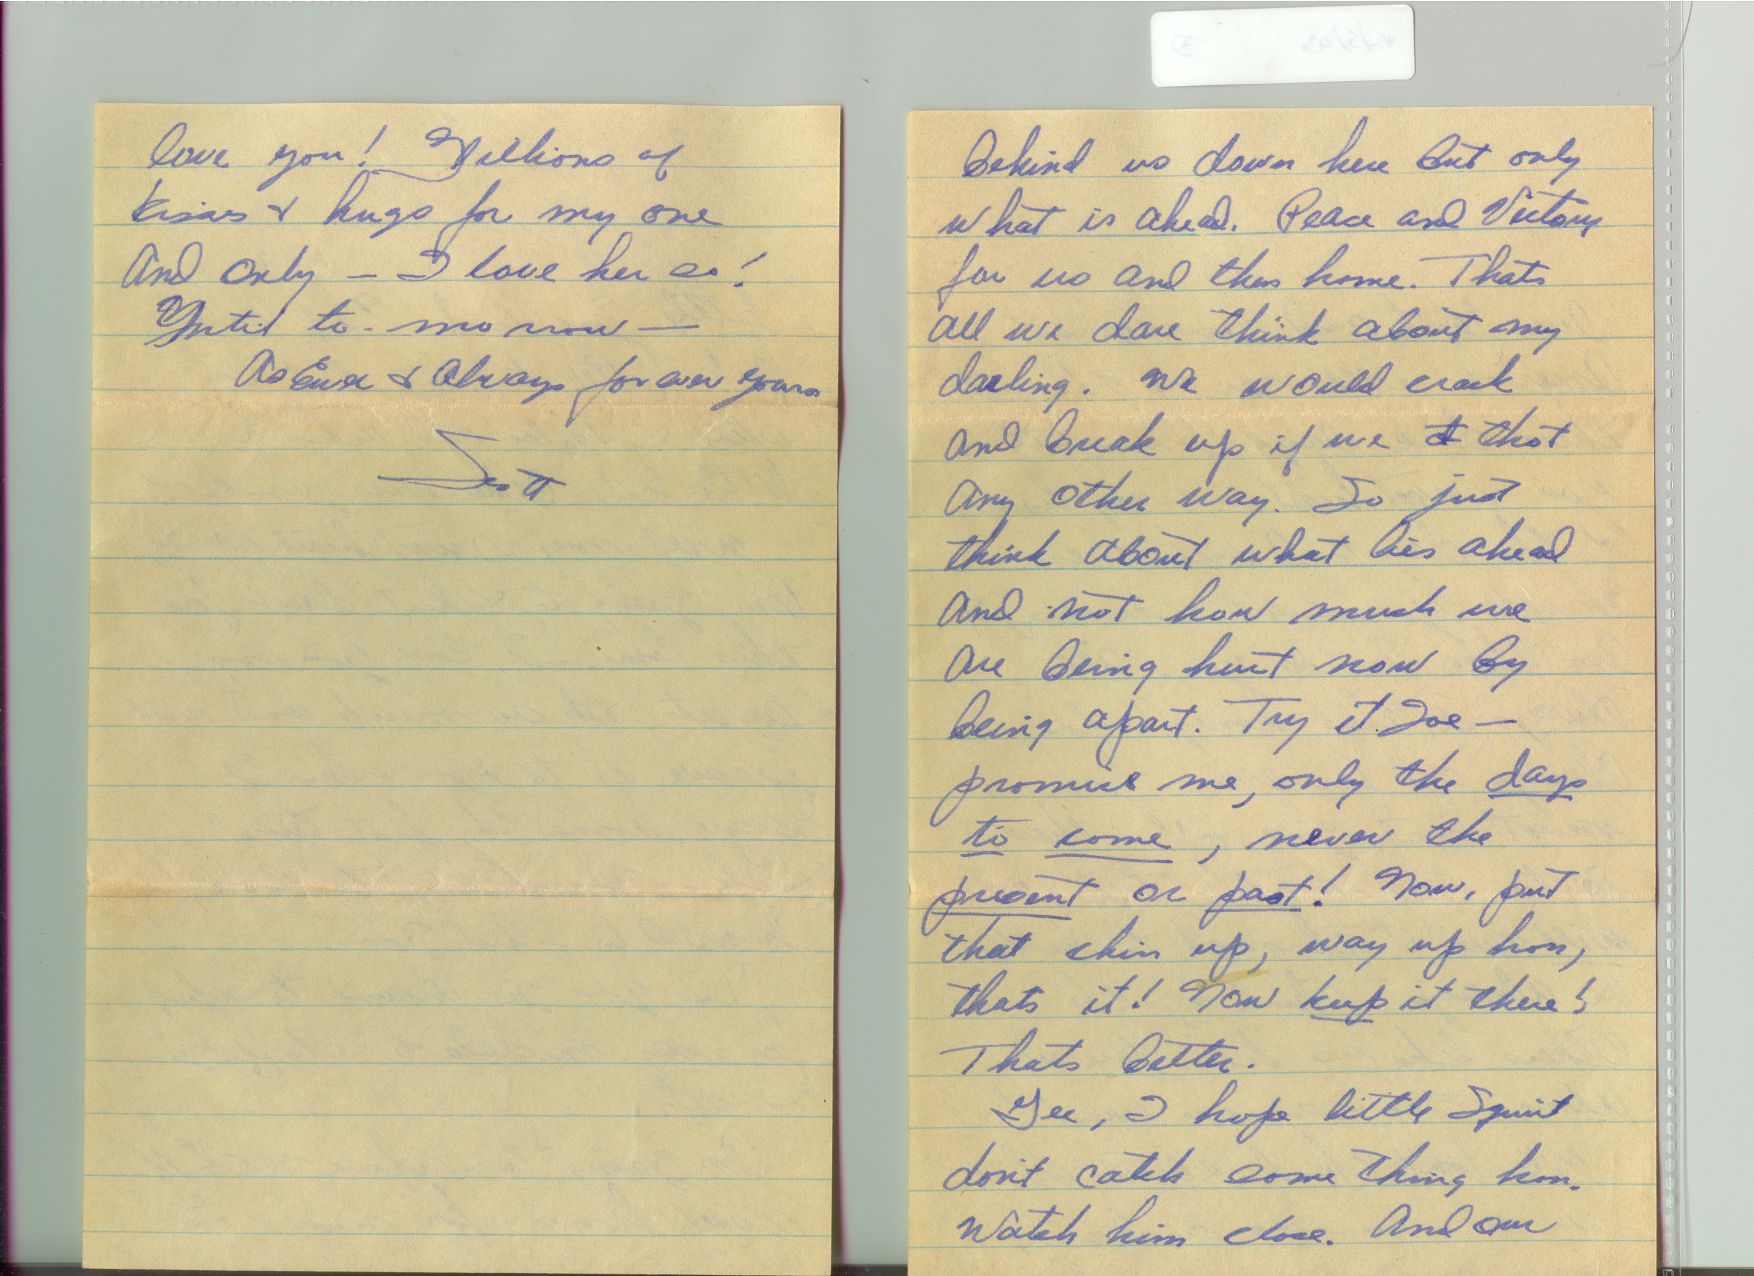 love you! Millions of
kisses & hugs for my one
And only — I love her so!
Until to-morrow —
As Ever & Always forever yours
Scott
behind us down here but only
what is ahead. Peace and Victory
for us and then home. Thats
all we dare think about my
darling. We would crack
and break up if we that
any other way. So just
think about what lies ahead
and not how much we
are being hurt now by
being apart. Try it Joe —
promise me, only the days
to come, never the
present or past! Now, put
that chin up, way up hon,
thats it! Now keep it there!
Thats better.
Gee, I hope little Squirt
don't catch something hon.
Watch him close. And our